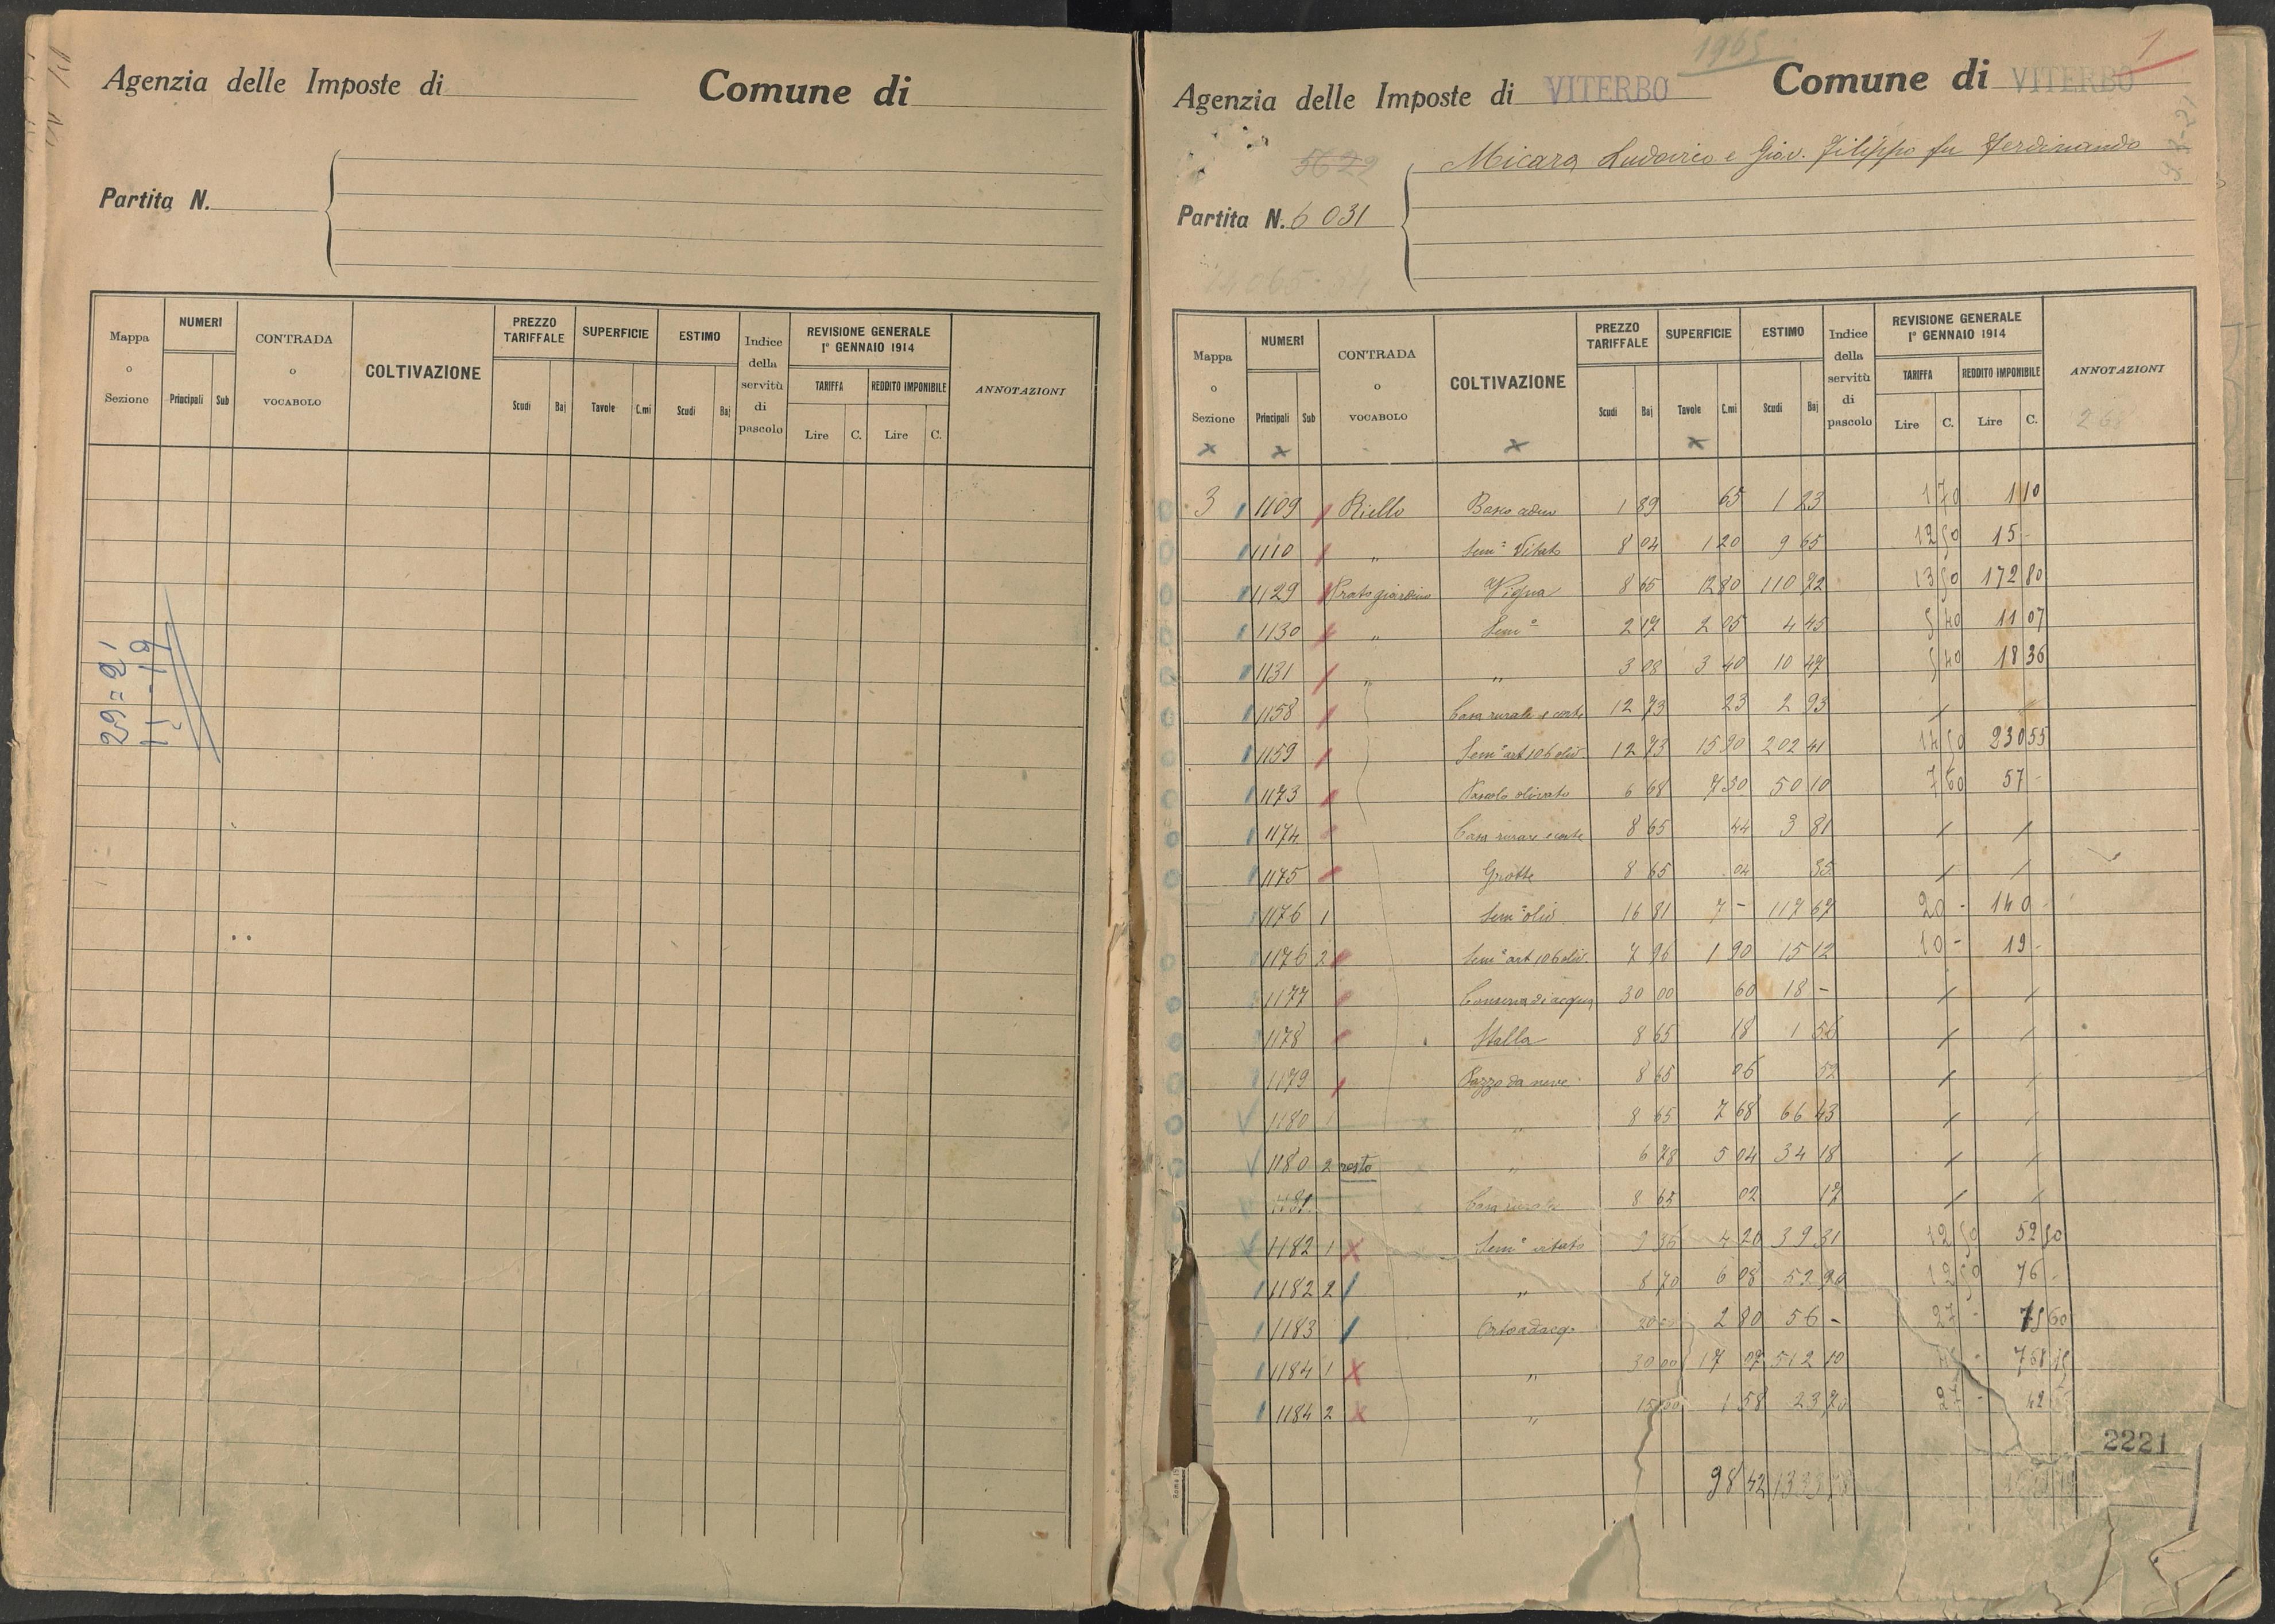 Agenzia delle Imposte di Comune di
Partita N.
Mappa o Sezione NUMERI Principali Sub CONTRADA o VOCABOLO COLTIVAZIONE PREZZO TARIFFALE Scudi Baj SUPERFICIE Tavole C.mi ESTIMO Scudi Baj Indice della servitù di pascolo REVISIONE GENERALE 1° GENNAIO 1914 TARIFFA Lire C. REDDITO IMPONIBILE Lire C. ANNOTAZIONI
29=21
11-19
1965
1
Agenzia delle Imposte di VITERBO Comune di VITERBO
5622
Micara Ludovico e Giov. Filippo fu Ferdinando
Partita N. 6031
Mappa o Sezione NUMERI Principali Sub CONTRADA o VOCABOLO COLTIVAZIONE PREZZO TARIFFALE Scudi Baj SUPERFICIE Tavole C.mi ESTIMO Scudi Baj Indice della servitù di pascolo REVISIONE GENERALE 1° GENNAIO 1914 TARIFFA Lire C. REDDITO IMPONIBILE Lire C. ANNOTAZIONI
x x x x
3 1109 Riello Bosco ceduo 1 89 65 1 23 1 70 1 10
1110 " Sem° Vitato 8 04 1 20 9 65 12 50 15 -
1129 Pratogiardino Vigna 8 65 12 80 110 72 13 50 172 80
1130 " Sem° 2 17 2 05 4 45 5 40 11 07
1131 " " 3 08 3 40 10 47 5 40 18 36
1158 Casa rurale e corte 12 73 23 2 93 / /
1159 Sem° art 106 oliv. 12 73 15 90 202 41 14 50 230 55
1173 Pascolo olivato 6 68 7 50 50 10 7 60 57 -
1174 Casa rurale e corte 8 65 44 3 81 / /
1175 Grotte 8 65 04 35 / /
1176 1 Sem° oliv. 16 81 7 - 117 67 20 - 140 -
1176 2 Sem° art 106 oliv. 7 96 1 90 15 12 10 - 19 -
1177 Conserva di acqua 30 00 60 18 - / /
1178 Stalla 8 65 18 1 56 / /
1179 Pozzo da neve 8 65 06 52 / /
1180 1 " 8 65 7 68 66 43 / /
1180 2 resto " 6 78 5 04 34 18 / /
1181 Casa rurale 8 65 02 17 / /
1182 1 Sem° vitato 9 36 4 20 39 31 12 50 52 50
1182 2 " 8 70 6 08 52 90 12 50 76 -
1183 Orto adacq. 20 00 2 80 56 - 27 - 75 60
1184 1 " 30 00 17 07 512 10 45 - 768 15
1184 2 " 15 00 1 58 23 70 27 - 42
2221
98 42